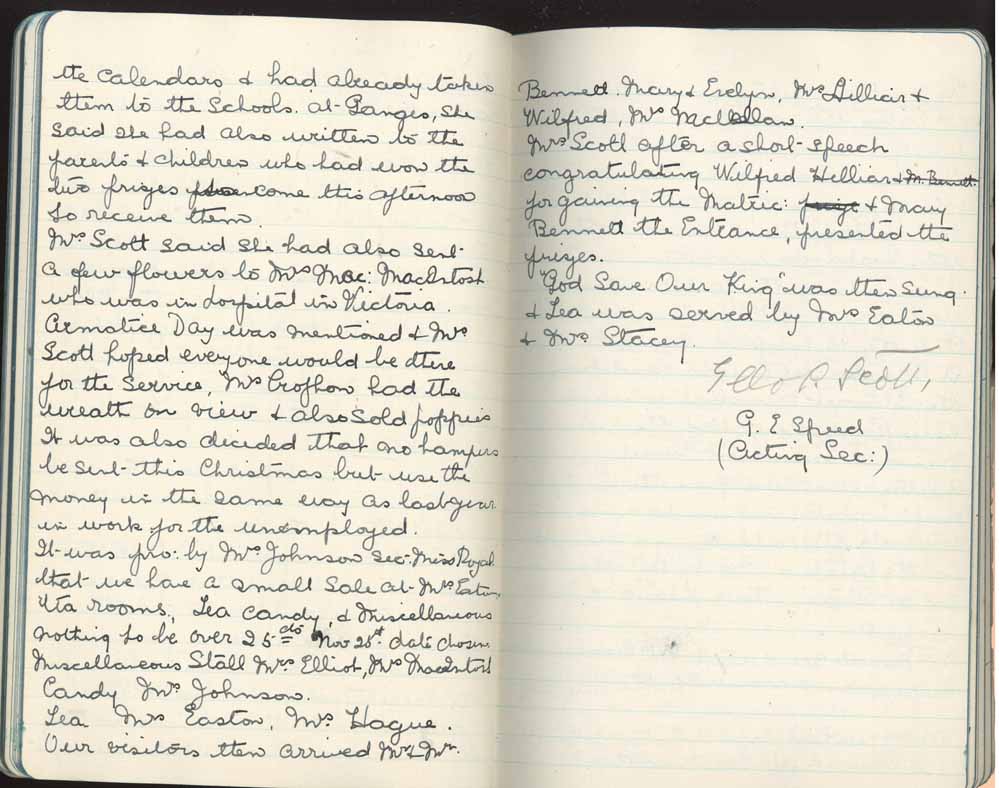 the calendars & had already taken
them to the Schools. at Ganges, She
said she had also written to the
parents & children who had won the
two prizes come this afternoon
to receive them.
Mrs Scott said she had also sent
a few flowers to Mrs Mac: MacIntosh
who was in hospital in Victoria.
Armistice Day was mentioned & Mrs
Scott hoped everyone would be there
for the Service, Mrs Crofton had the
wreath on view & also sold poppies
It was also decided that no hampers
be sent this Christmas but use the
money in the same way as last year
in work for the unemployed.
It was pro: by Mrs Johnson sec: Miss Royal
that we have a small Sale at Mrs Eaton
tea rooms, Tea candy, & Miscellaneous
nothing to be over 25 cts Nov 25st. date chosen
Miscellaneous Stall Mrs. Elliot, Mrs MacIntosh
Candy Mrs Johnson.
Tea Mrs Easton, Mrs Hague.
Our visitors then arrived Mr & Mrs.
Bennett. Mary & Evelyn, Mrs Hilliar &
Wilfred, Mrs
Mrs Scott after a short speech
congratulating Wilfred Helliar & M. Bennett
for gaining the Matric: prize & Mary
Bennett the Entrance, presented the
prizes.
"God Save Our King" was then sung
& Tea was served by Mrs Eaton
& Mrs Stacey.
Scott,
G. E Speed
(Acting Sec:)